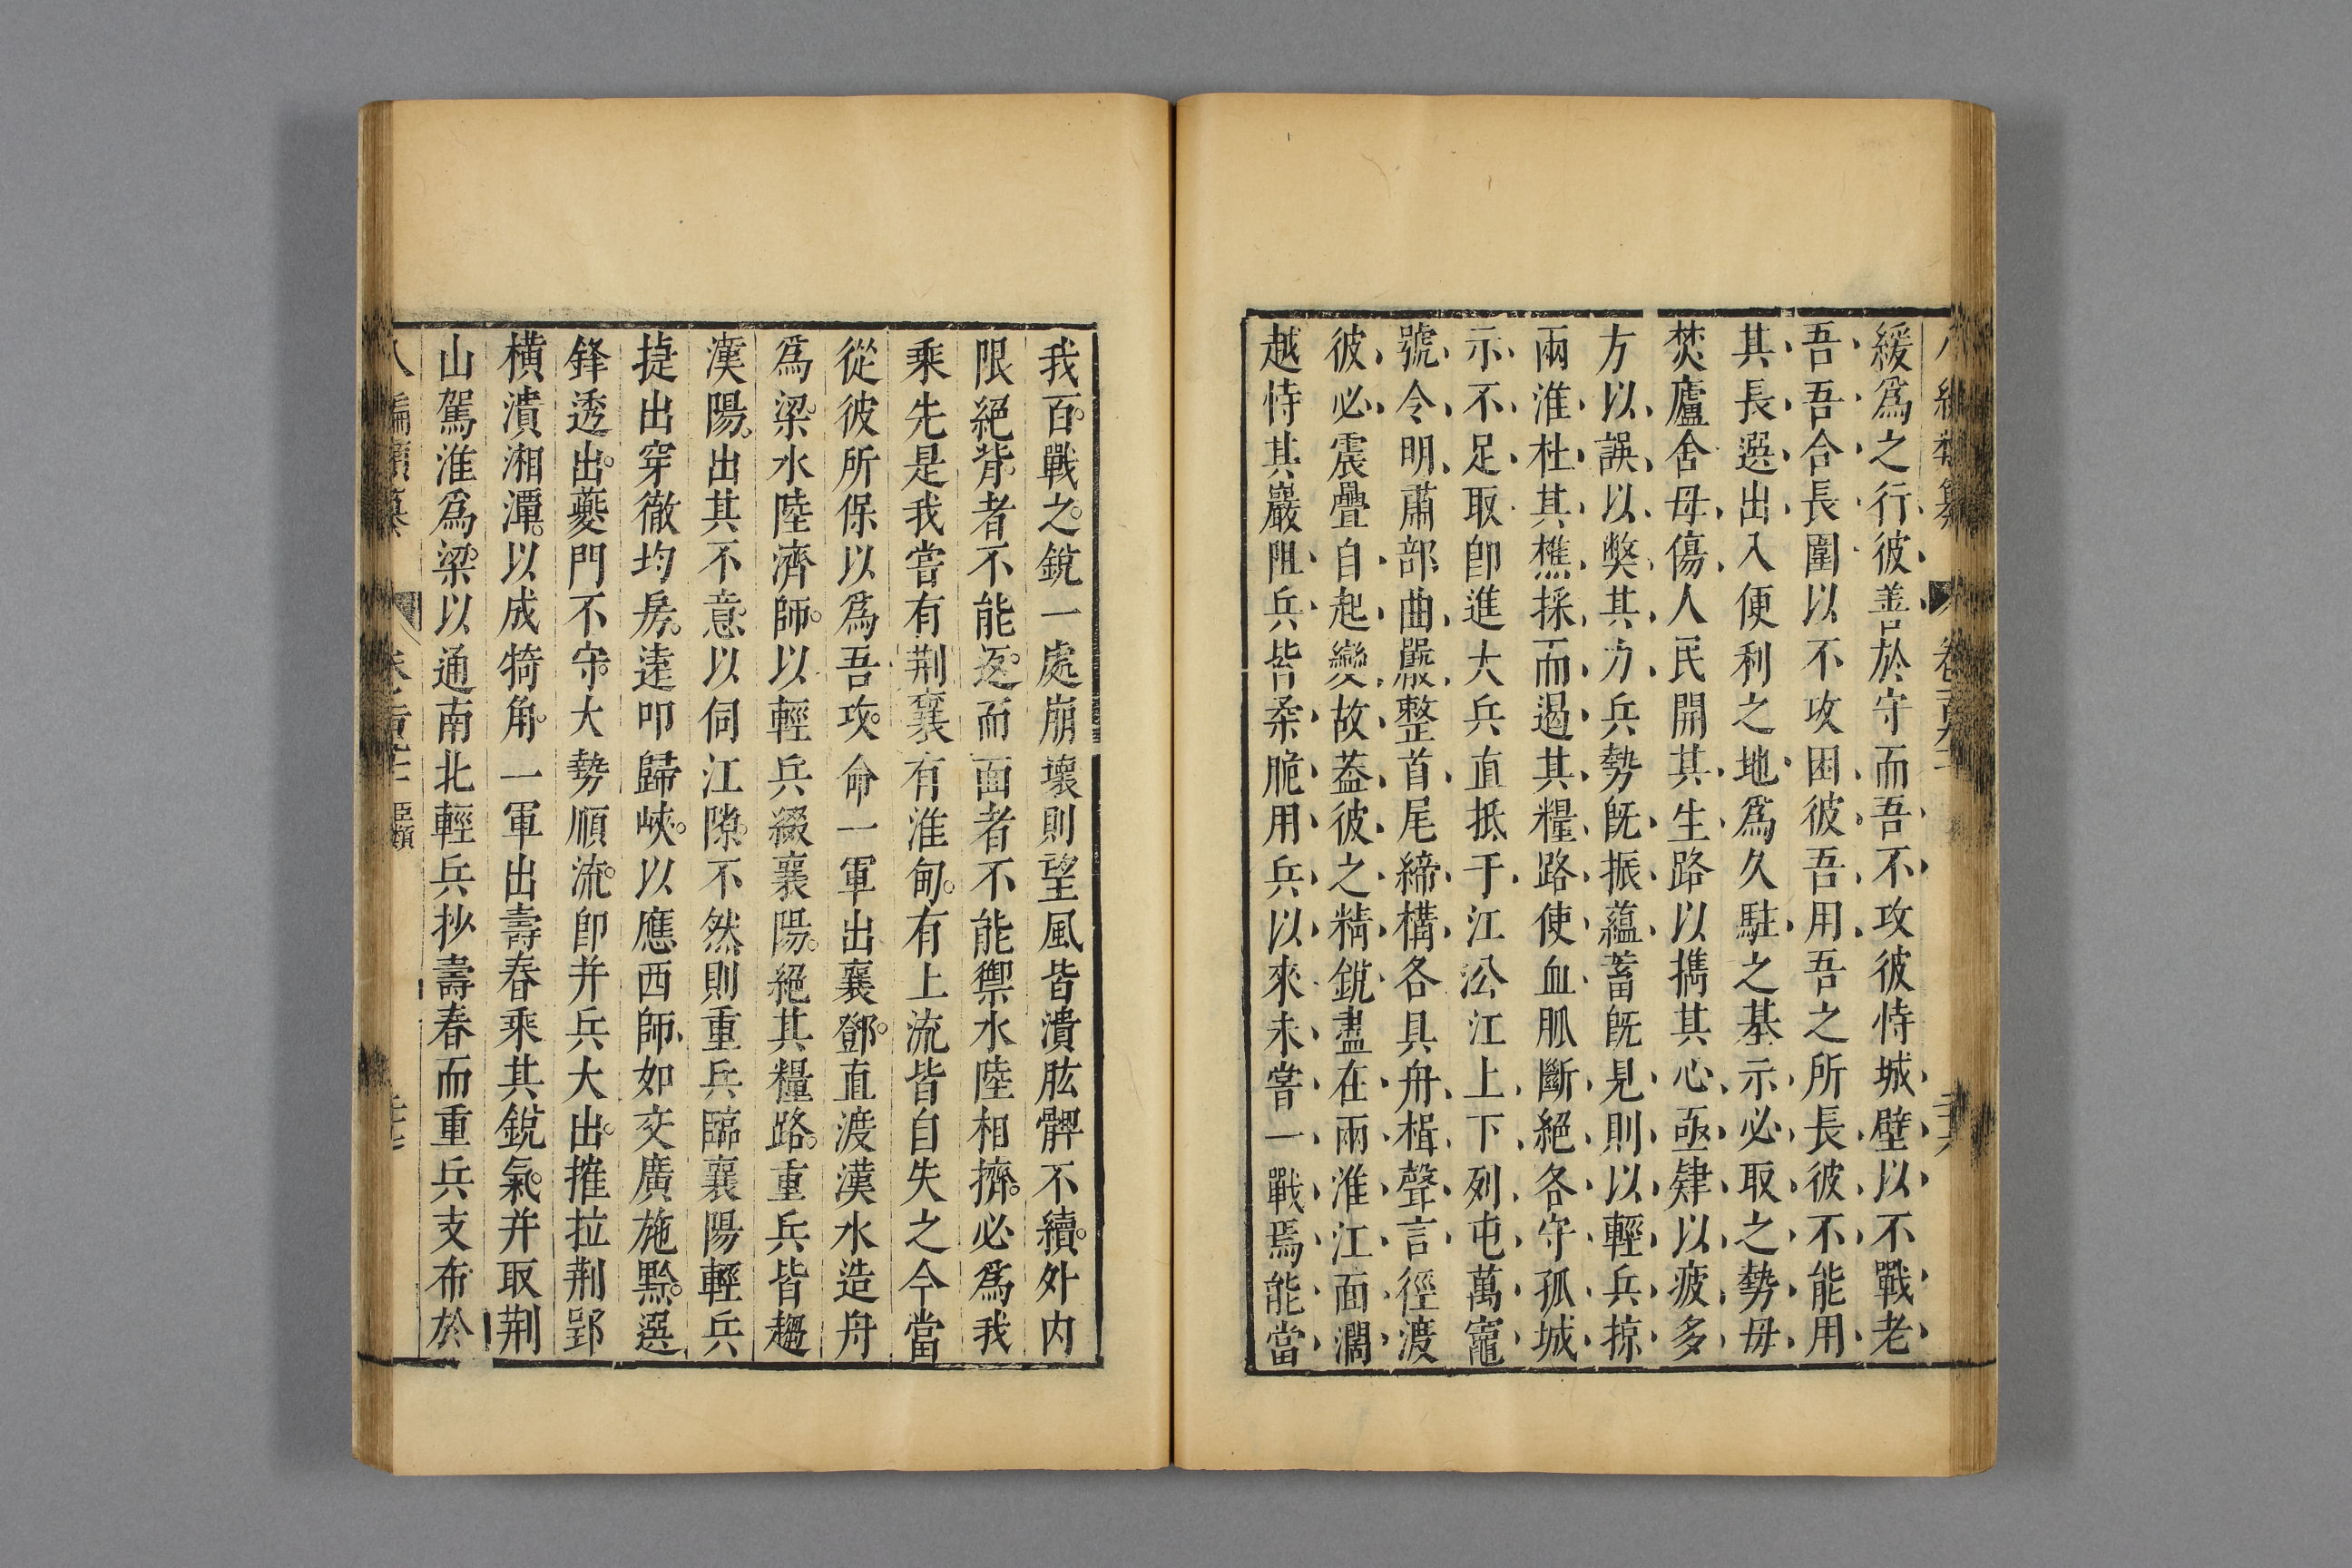 緩爲之行彼善於守而吾不攻彼恃城壁以不戰老
吾吾合長圍以不攻困彼吾用吾之所長彼不能用
其長選出入便利之地爲久駐之基示必取之勢毋
焚廬舍毋傷人民開其生路以攜其心亟肄以疲多
方以誤以獘其力兵勢旣振蘊蓄旣見則以輕兵掠
兩淮杜其樵採而遏其糧路使血脈斷絕各守孤城
示不足取卽進大兵直抵于江㳂江上下列屯萬竈
號令明肅部曲嚴整首尾締構各具舟楫聲言徑渡
彼必震疊自起變故葢彼之精銳盡在兩淮江面濶
越恃其巖阻兵皆柔脆用兵以來未嘗一戰焉能當
我百戰之銳一處崩壞則望風皆潰肱髀不續外內
限絕背者不能返而面者不能禦水陸相擠必爲我
乘先是我嘗有荆襄有淮甸有上流皆自失之今當
從彼所保以爲吾攻命一軍出襄鄧直渡漢水造舟
爲梁水陸濟師以輕兵綴襄陽絕其糧路重兵皆趨
漢陽出其不意以伺江隙不然則重兵臨襄陽輕兵
捷出穿徹均房遠叩歸峽以應西師如交廣施黔選
鋒透出夔門不守大勢順流卽并兵大出摧拉荆郢
橫潰湘潭以成犄角一軍出壽春乘其銳氣并取荆
山駕淮爲梁以通南北輕兵抄壽春而重兵支布於